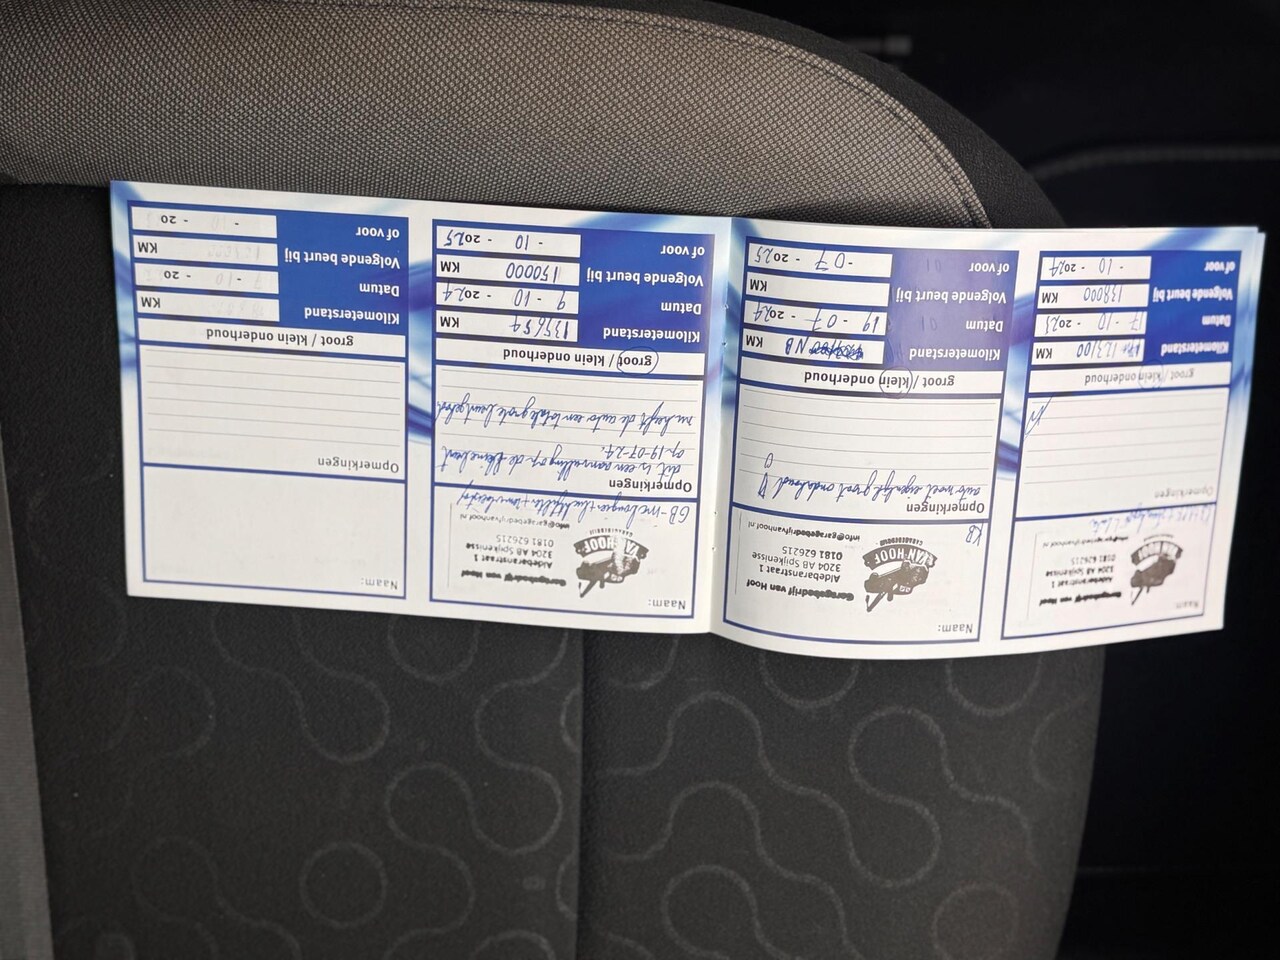 Naam:
Garagebedrijf van Hoof
Aldebaranstraat 1
3204 AB Spijkenisse
0181 626215
info@garagebedrijfvanhoof.nl
VAN HOOF
Opmerkingen
groot / klein onderhoud
Kilometerstand 123100 KM
Datum 17 - 10 - 2023
Volgende beurt bij 138000 KM
of voor - 10 - 2024
Naam:
Garagebedrijf van Hoof
Aldebaranstraat 1
3204 AB Spijkenisse
0181 626215
info@garagebedrijfvanhoof.nl
VAN HOOF
GARAGEBEDRIJF
KB
Opmerkingen
auto moet eigenlijk groot onderhoud
groot / klein onderhoud
Kilometerstand NB KM
Datum 19 - 07 - 2024
Volgende beurt bij KM
of voor - 07 - 2025
Naam:
Garagebedrijf van Hoof
Aldebaranstraat 1
3204 AB Spijkenisse
0181 626215
info@garagebedrijfvanhoof.nl
VAN HOOF
GARAGEBEDRIJF
GB
Opmerkingen
dit is een aanvulling op de kleine beurt
op 19-07-24.
nu heeft de auto een totale grote beurt gehad
groot / klein onderhoud
Kilometerstand 135654 KM
Datum 9 - 10 - 2024
Volgende beurt bij 150000 KM
of voor - 10 - 2025
Naam:
Opmerkingen
groot / klein onderhoud
Kilometerstand KM
Datum - - 20
Volgende beurt bij KM
of voor - - 20